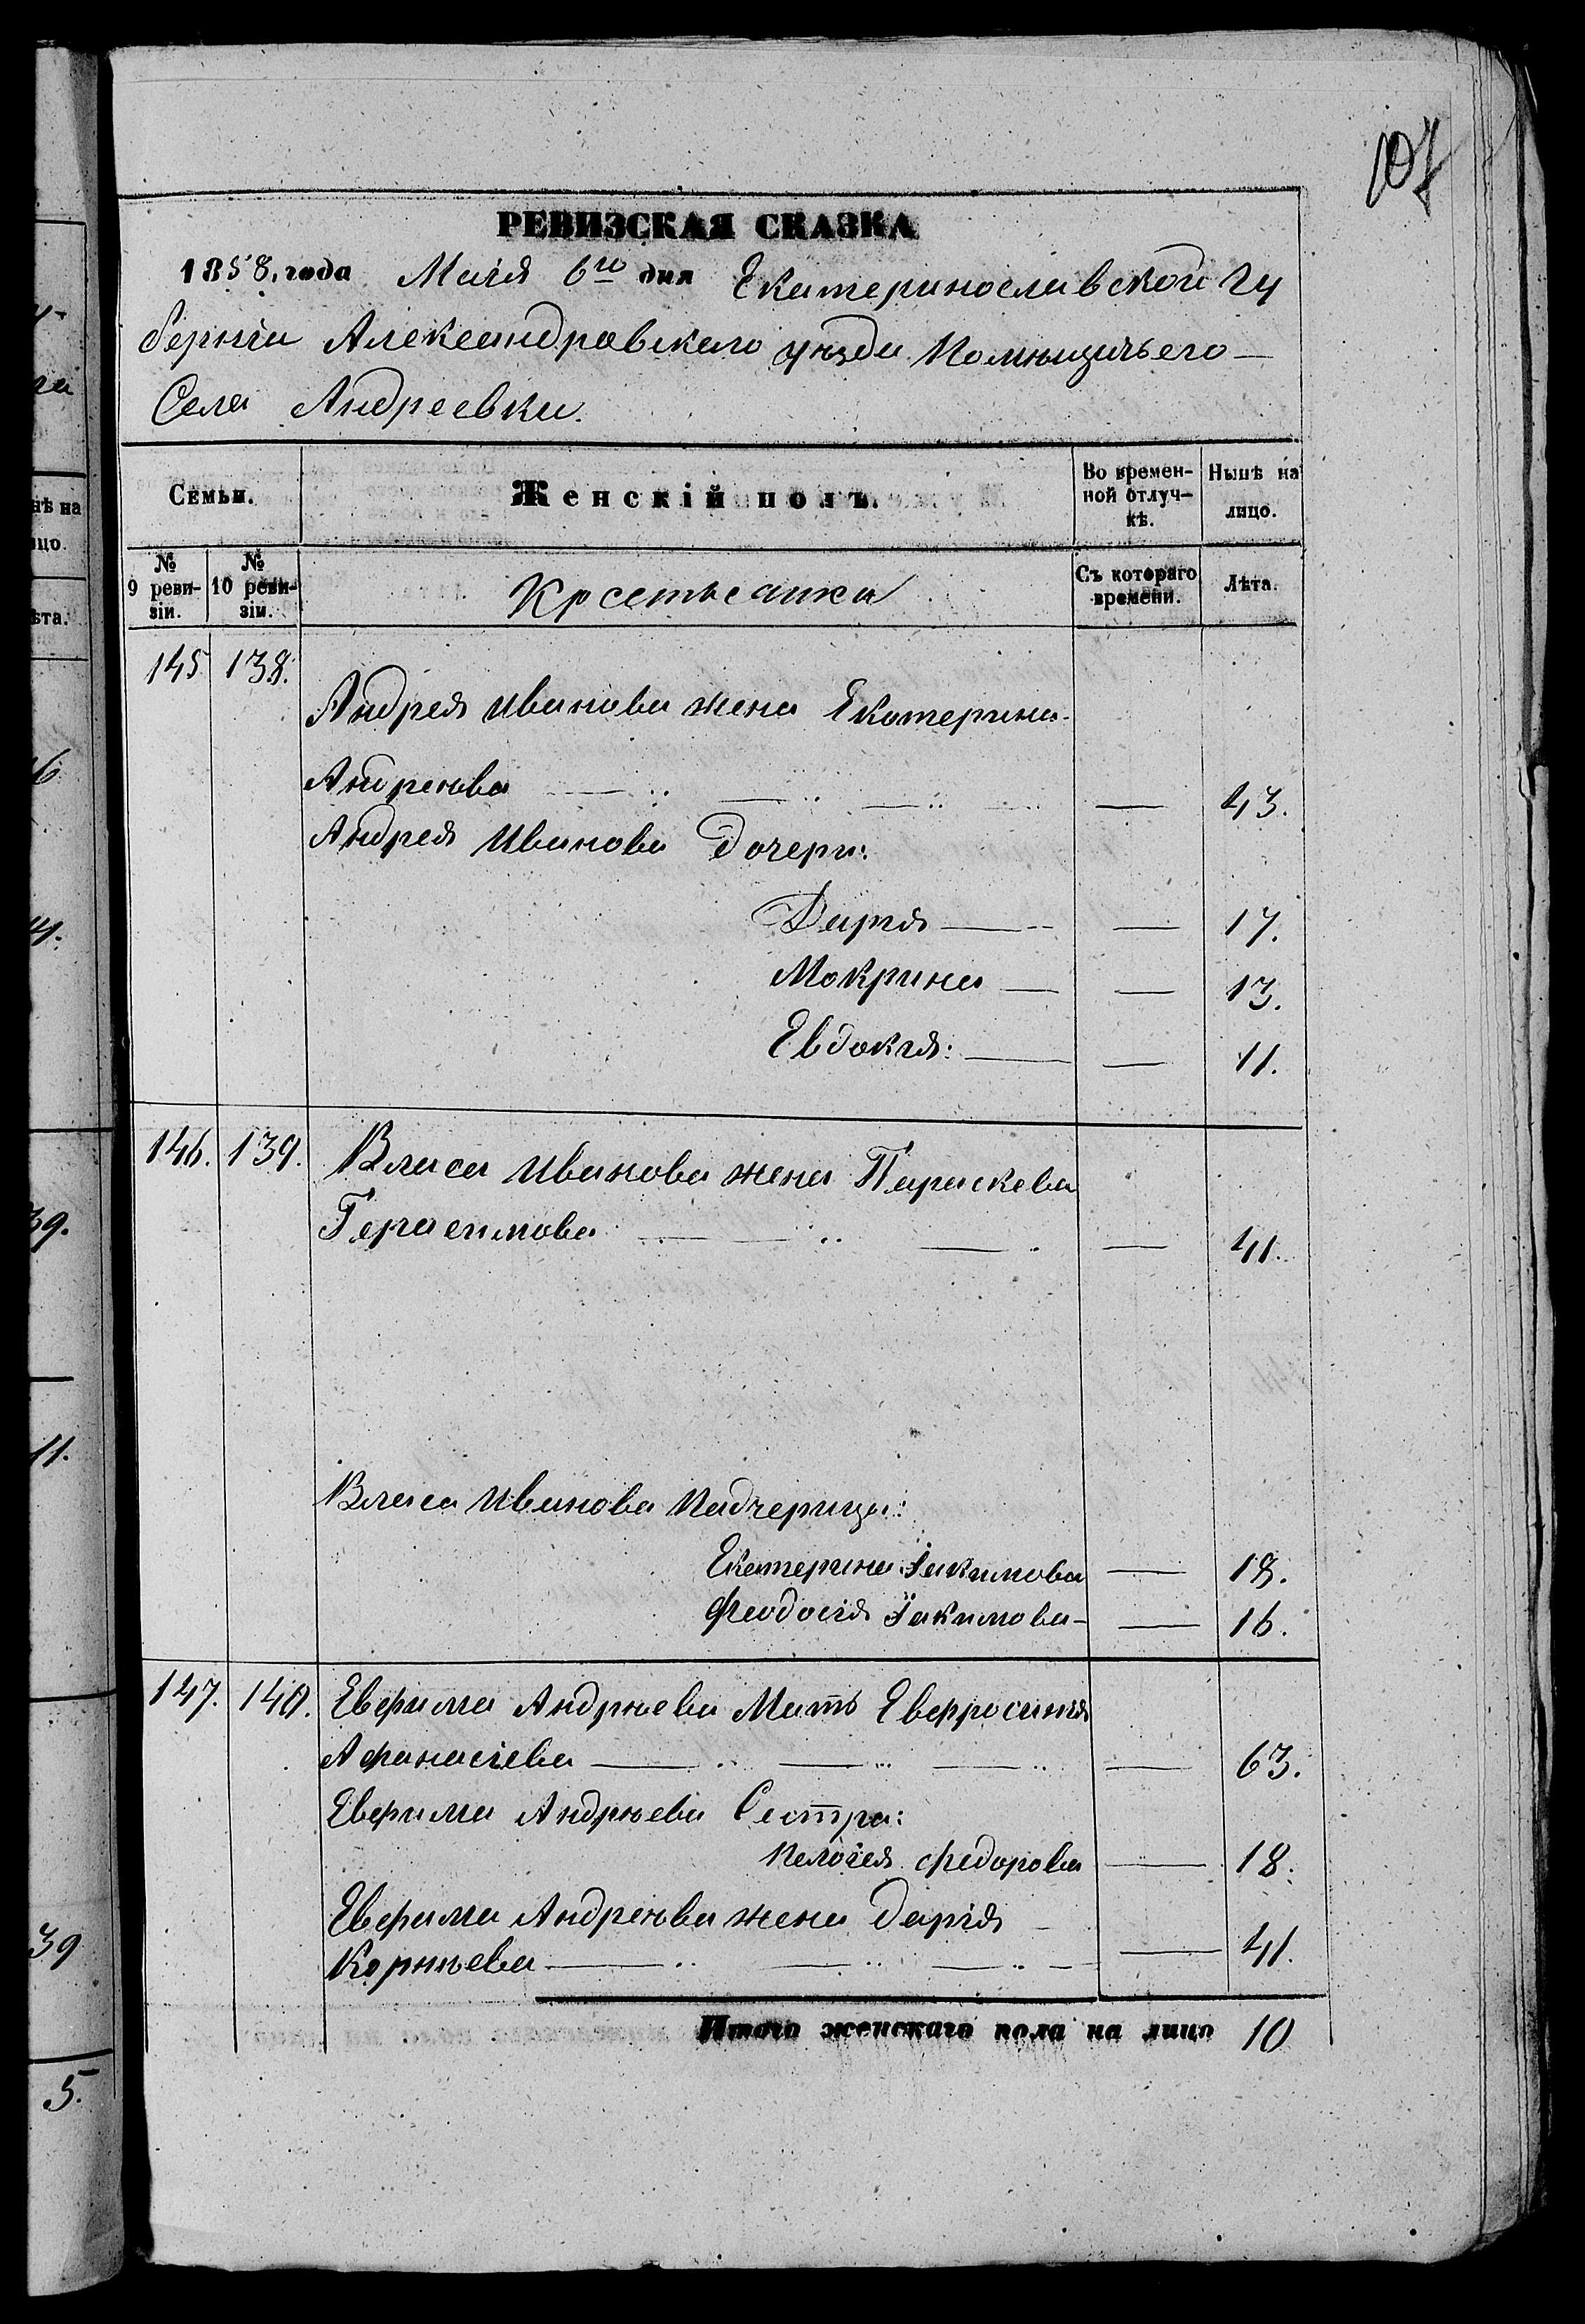 107
РЕВИЗСКАЯ СКАЗКА
1858. года Маія 6го дня Екатеринославской гу
берніи Александровскаго уѣзда Помѣщичьего
Села Андреевки.
Семьи. Женскій полъ. Во времен- Нынѣ на
ной отлуч- лицо.
кѣ.
№ № Крестьянка Съ котораго Лѣта.
9 реви- 10 реви- времени.
зіи. зіи.
145 138.
Андрея Иванова жена Екатерина
Андреѣва — 43.
Андрея Иванова Дочери:
Дарія — 17.
Мокрина — 13.
Евдокія: — 11.
146. 139. Власа Иванова жена Параскева
Герасимова — 41.
Власа Иванова Падчерицы:
Екатерина Іакимова — 18.
Феодосія Іакимова — 16.
147. 140. Евфима Андрѣева Мать Евфросинія
Афанасіева — 63.
Евфима Андрѣева Сестра:
Пелогея Федорова — 18.
Евфима Андреѣва жена Дарія
Корнѣева — 41.
Итого женскаго пола на лицо 10
нѣ на
ицо.
ѣта.
39.
11.
39
5.